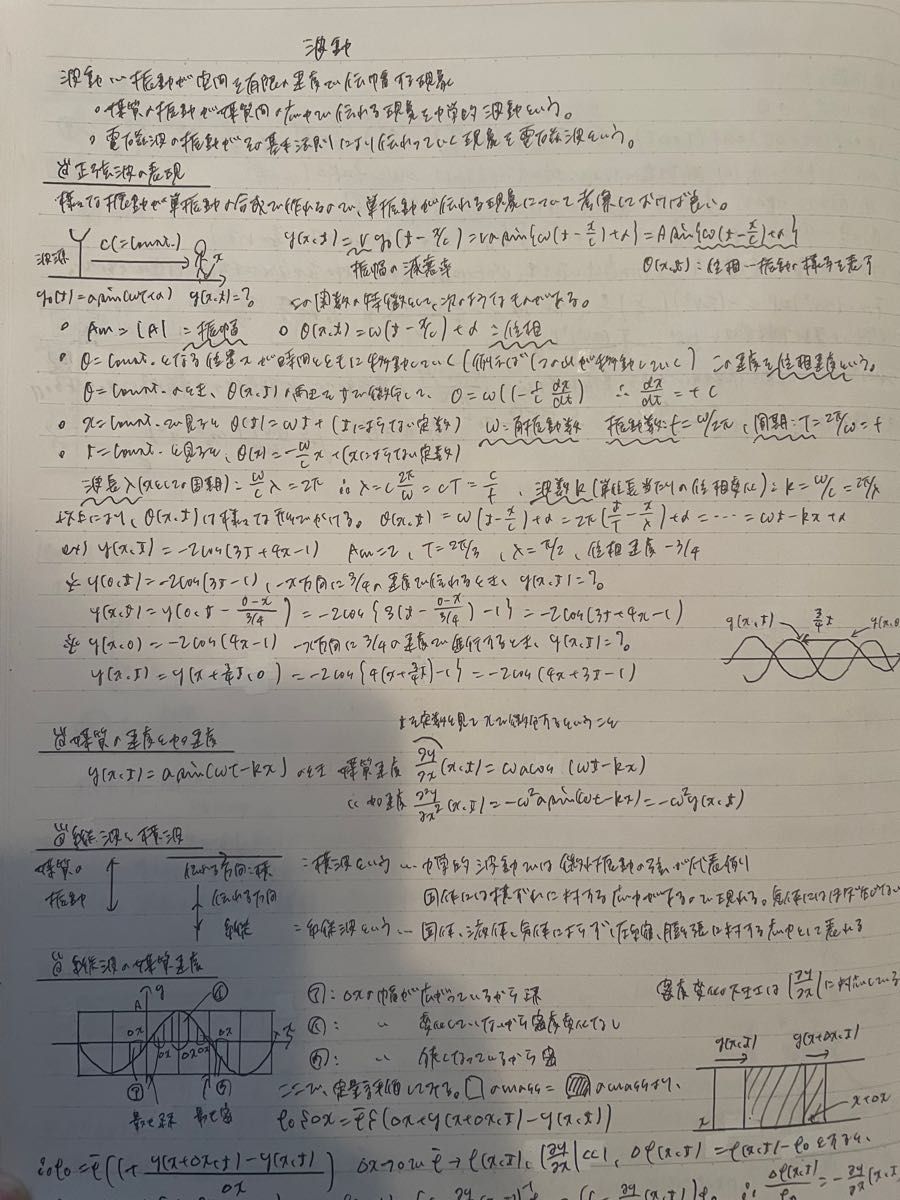 波動
波動…振動が空間を有限の速度で伝幡する現象
○媒質の振動が媒質間の応力で伝わる現象を力学的波動という。
○電磁波の振動がその基本法則により伝わっていく現象を電磁波という。
正弦波の表現
様々な振動が単振動の合成で作れるので、単振動が伝わる現象について考察しておけば良い。
波源 c(=const.) x y(x,t)=r y₀(t-x/c)=ra sin{ω(t-x/c)+α}=A sin{ω(t-x/c)+α}
振幅の減衰率 θ(x,t):位相…振動の様子を表す
y₀(t)=a sin(ωt+α) y(x,t)=? この関数の特徴として、次のようなものがある。
○ Am=|A|=振幅 ○ θ(x,t)=ω(t-x/c)+α=位相
○ θ=const.となる位置xが時間とともに移動していく この速度を位相速度という。
θ=const.のとき、θ(x,t)の両辺をtで微分して、0=ω(1-1/c dx/dt) ∴ dx/dt=+c
○ x=const.で見ると θ(t)=ωt+(tによらない定数) ω:角振動数 振動数:f=ω/2π、周期:T=2π/ω=
○ t=const.で見ると、θ(x)=-ω/c x+(xによらない定数)
波長λ(xでの周期):ω/c λ=2π ∴λ=c 2π/ω=cT=c/f、波数k(単位長当たりの位相変化):k=ω/c=2π/λ
以上により、θ(x,t)は様々な形でかける。θ(x,t)=ω(t-x/c)+α=2π(t/T-x/λ)+α=……=ωt-kx+α
ex) y(x,t)=-2cos(3t+4x-1) Am=2、T=2π/3、λ=π/2、位相速度-3/4
☆ y(0,t)=-2cos(3t-1)、-x方向に3/4の速度で伝わるとき、y(x,t)=?
y(x,t)=y(0,t-(0-x)/(3/4))=-2cos{3(t-(0-x)/(3/4))-1}=-2cos(3t+4x-1)
☆ y(x,0)=-2cos(4x-1) -x方向に3/4の速度で進行するとき、y(x,t)=?
y(x,t)=y(x+3/4t,0)=-2cos{4(x+3/4t)-1}=-2cos(4x+3t-1)
y(x,t) 3/4t y(x,0
tを定数と見てxで微分するということ
媒質の速度と加速度
y(x,t)=a sin(ωt-kx)のとき 媒質速度 ∂y/∂x(x,t)=ωa cos(ωt-kx)
〃 加速度 ∂²y/∂x²(x,t)=-ω²a sin(ωt-kx)=-ω²y(x,t)
縦波と横波
媒質の振動 伝わる方向:横 =横波という…力学的波動では 弦が代表例
伝わる方向 固体には横ずれに対する応力があるので現れる。気体には
縦 =縦波という…固体、液体、気体によらず圧縮、膨張に対する応力として表れる
縦波の媒質速度
A y x Δx Δx Δx Δx
㋐:Δxの幅が広がっているから疎
㋑:〃 変化していないから密度変化なし
㋒:〃 小さくなっているから密
密度変化は |∂y/∂x| に対応している
最も疎 最も密
ここで、定量評価してみる。□のmass=▨のmassより、
y(x,t) y(x+Δx,t) x x+Δx
ρ₀SΔx=ρ̄S{Δx+y(x+Δx,t)-y(x,t)}
∴ρ₀=ρ̄(1+(y(x+Δx,t)-y(x,t))/Δx) Δx→0で ρ̄→ρ(x,t)、|∂y/∂x|<<1、Δρ(x,t)=ρ(x,t)-ρ₀とすると、
∴ Δρ(x,t)/ρ₀=-∂y/∂x(x,t